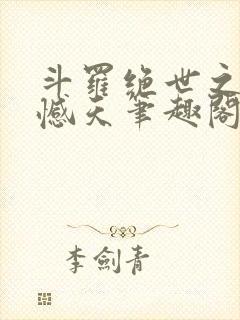 斗羅絶世之
憾天筆趣閣
李劍青